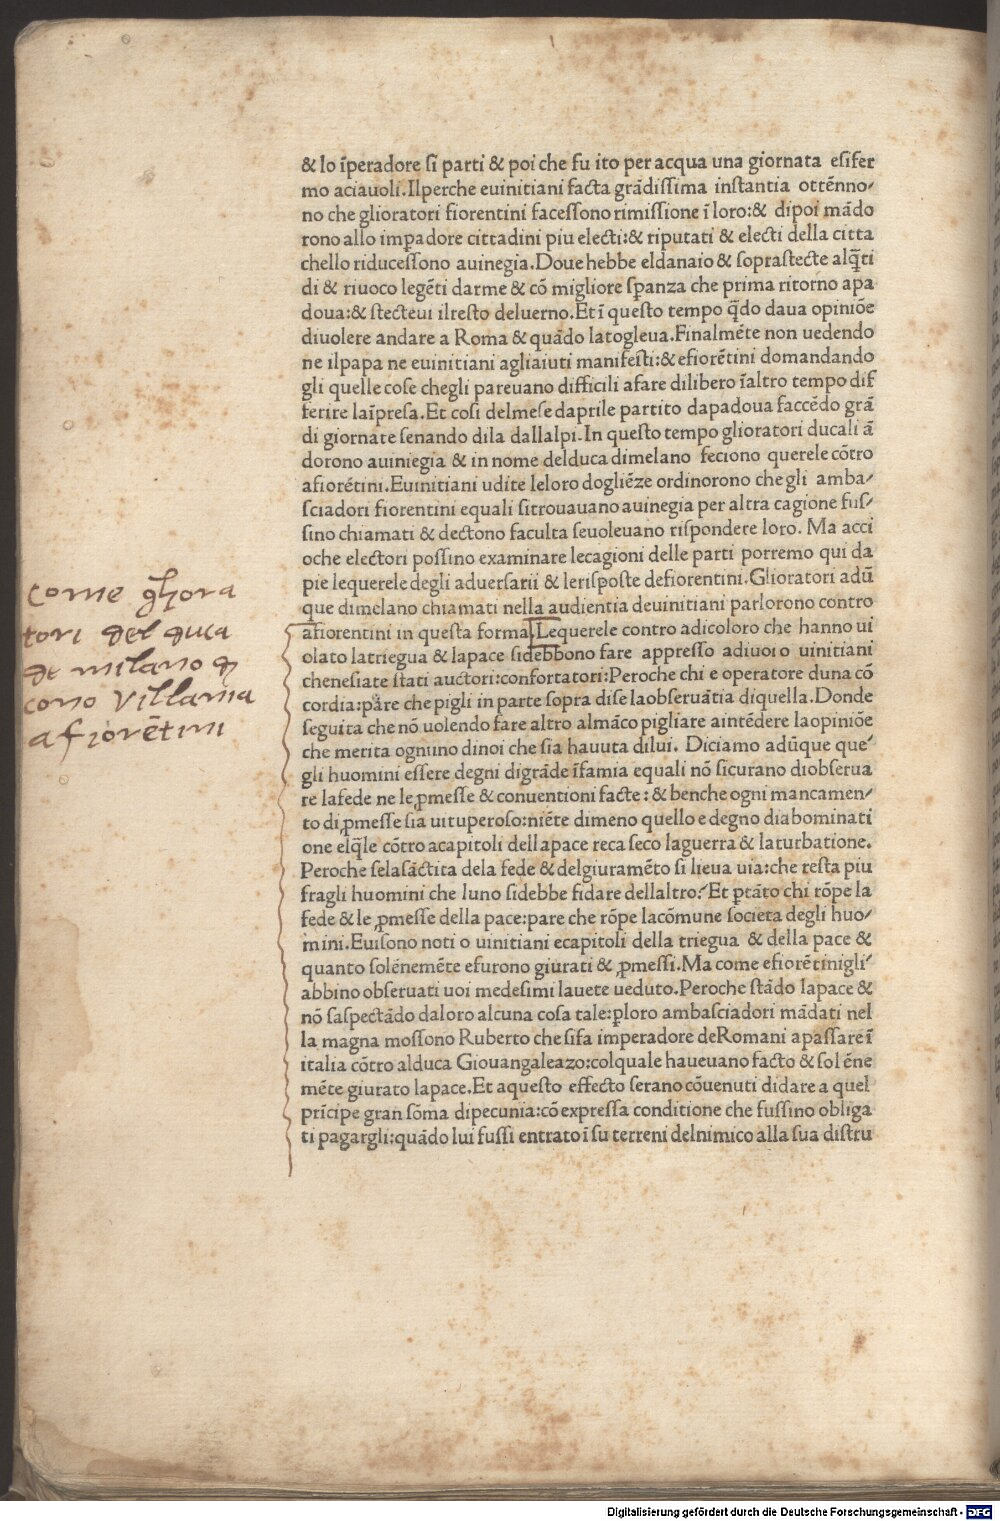 & lo īperadore si parti & poi che fu ito per acqua una giornata esifer
mo aciauoli.Ilperche euinitiani facta grādissima instantia ottēnno-
no che glioratori fiorentini facessono rimissione ī loro:& dipoi mādo
rono allo impadore cittadini piu electi:& riputati & electi della citta
chello riducessono auinegia.Doue hebbe eldanaio & soprastecte alq̄ti
di & riuoco legēti darme & cō migliore spanza che prima ritorno apa
doua:& stecteui ilresto deluerno.Et ī questo tempo q̄do daua opiniōe
diuolere andare a Roma & quādo latogleua.Finalmēte non uedendo
ne ilpapa ne euinitiani agliaiuti manifesti:& efiorētini domandando
gli quelle cose chegli pareuano difficili afare dilibero īaltro tempo dif
ferire laīpresa.Et cosi delmese daprile partito dapadoua faccēdo grā
di giornate senando dila dallalpi.In questo tempo glioratori ducali ā
dorono auiniegia & in nome delduca dimelano feciono querele cōtro
afiorētini.Euinitiani udite leloro dogliēze ordinorono chegli amba-
sciadori fiorentini equali sitrouauano auinegia per altra cagione fus-
sino chiamati & dectono faculta seuoleuano rispondere loro. Ma acci
oche electori possino examinare lecagioni delle parti porremo qui da
pie lequerele degli aduersarii & lerisposte defiorentini.Glioratori adū
que dimelano chiamati nella audientia deuinitiani parlorono contro
afiorentini in questa forma.Lequerele contro adicoloro che hanno ui
olato latriegua & lapace sidebbono fare appresso adiuoi o uinitiani
chenesiate stati auctori:confortatori:Peroche chi e operatore duna cō
cordia:pare che pigli in parte sopra dise laobseruātia diquella.Donde
seguita che nō uolendo fare altro almāco pigliare aintēdere laopiniōe
che merita ognuno dinoi che sia hauuta dilui. Diciamo adūque que-
gli huomini essere degni digrāde īfamia equali nō sicurano diobserua
re lafede ne le ꝓmesse & conuentioni facte:& benche ogni mancamen-
to di ꝓmesse sia uituperoso:niēte dimeno quello e degno diabominati
one elq̄le cōtro acapitoli dellapace reca seco laguerra & laturbatione.
Peroche selasāctita dela fede & delgiuramēto si lieua uia:che resta piu
fragli huomini che luno sidebbe fidare dellaltro? Et ptāto chi rōpe la
fede & le ꝓmesse della pace:pare che rōpe lacōmune societa degli huo-
mini.Euisono noti o uinitiani ecapitoli della triegua & della pace &
quanto solēnemēte efurono giurati & ꝓmessi.Ma come efiorētinigli-
abbino obseruati uoi medesimi lauete ueduto.Peroche stādo lapace &
nō saspectādo daloro alcuna cosa tale:ploro ambasciadori mādati nel
la magna mossono Ruberto che sifa imperadore deRomani apassare ī
italia cōtro alduca Giouangaleazo:colquale haueuano facto & solēne
mēte giurato lapace.Et aquesto effecto serano cōuenuti didare a quel
prīcipe gran sōma dipecunia:cō expressa conditione che fussino obliga
ti pagargli:quādo lui fussi entrato ī su terreni delnimico alla sua distru
come ghora
tori del duca
de milano
cono villania
a fiorētini
Digitalisierung gefördert durch die Deutsche Forschungsgemeinschaft - DFG